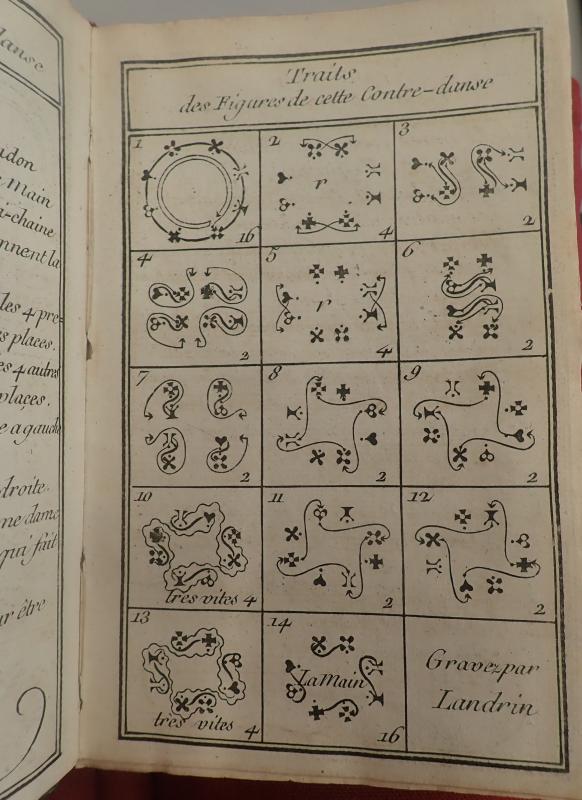 danse
Main
i-chaine
nnent la
les 4 pre=
s places.
es 4 autres
places.
e a gauche
droite.
ne dame
qui fait
ur être
Traits
des Figures de cette Contre-danse
1
16
2
r
4
3
2
4
2
5
r
4
6
2
7
2
8
2
9
2
10
très vites 4
11
2
12
2
13
très vites 4
14
La Main
16
Gravez par
Landrin